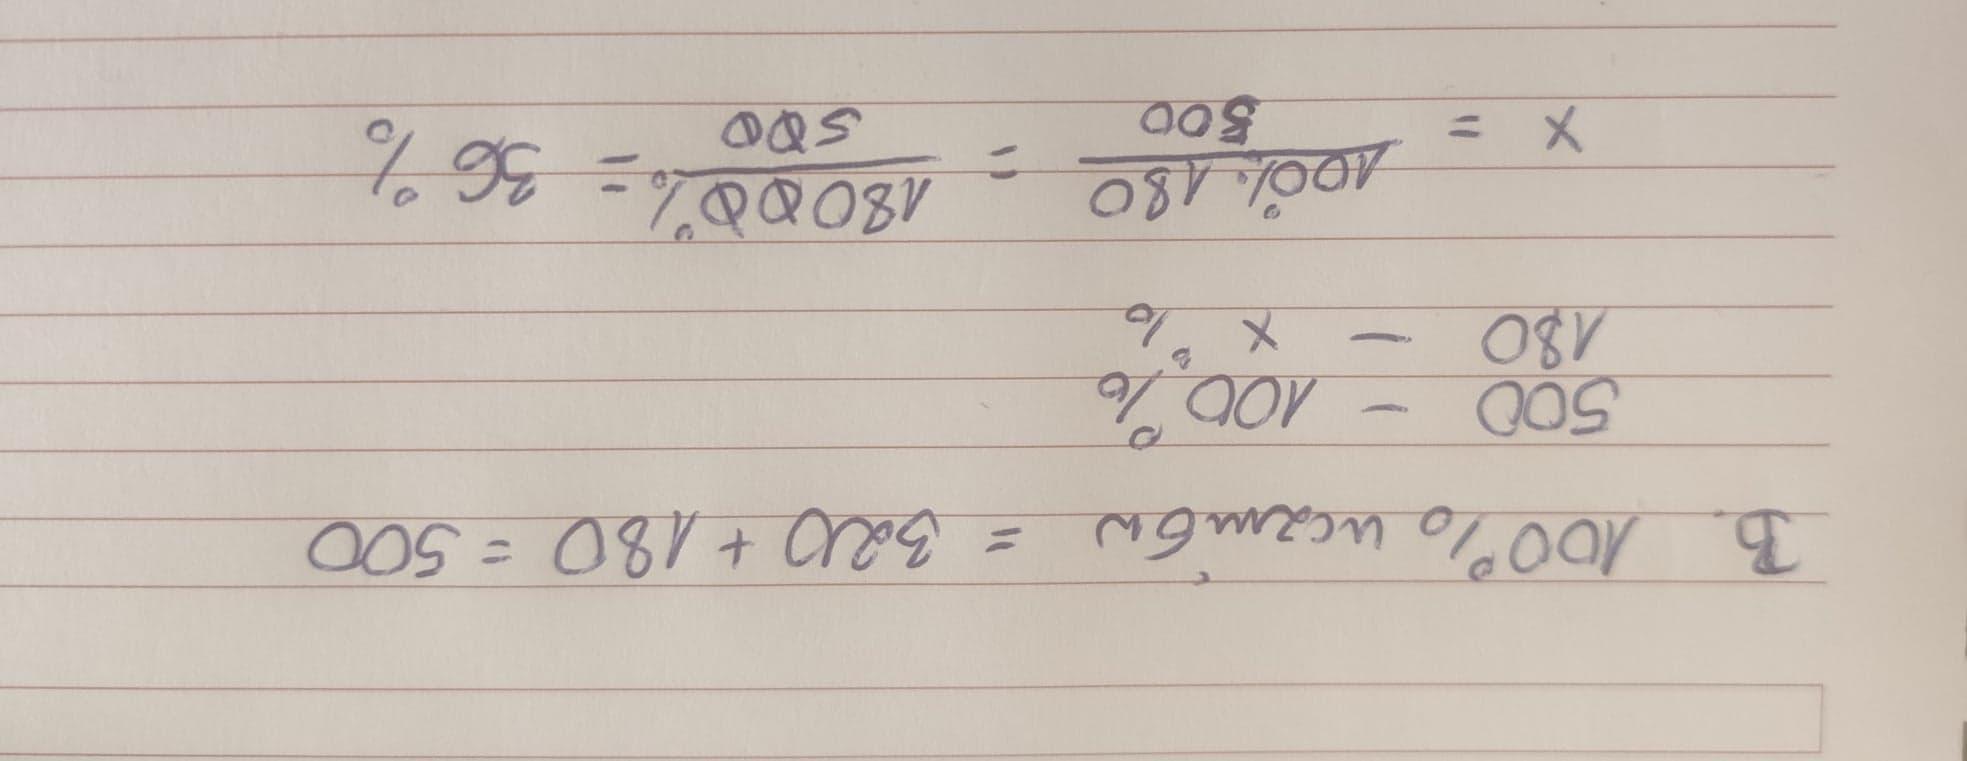 B. 100% uczniów = 320 + 180 = 500
500 - 100%
180 - x %
x = 100% · 180 / 500 = 18000% / 500 = 36 %